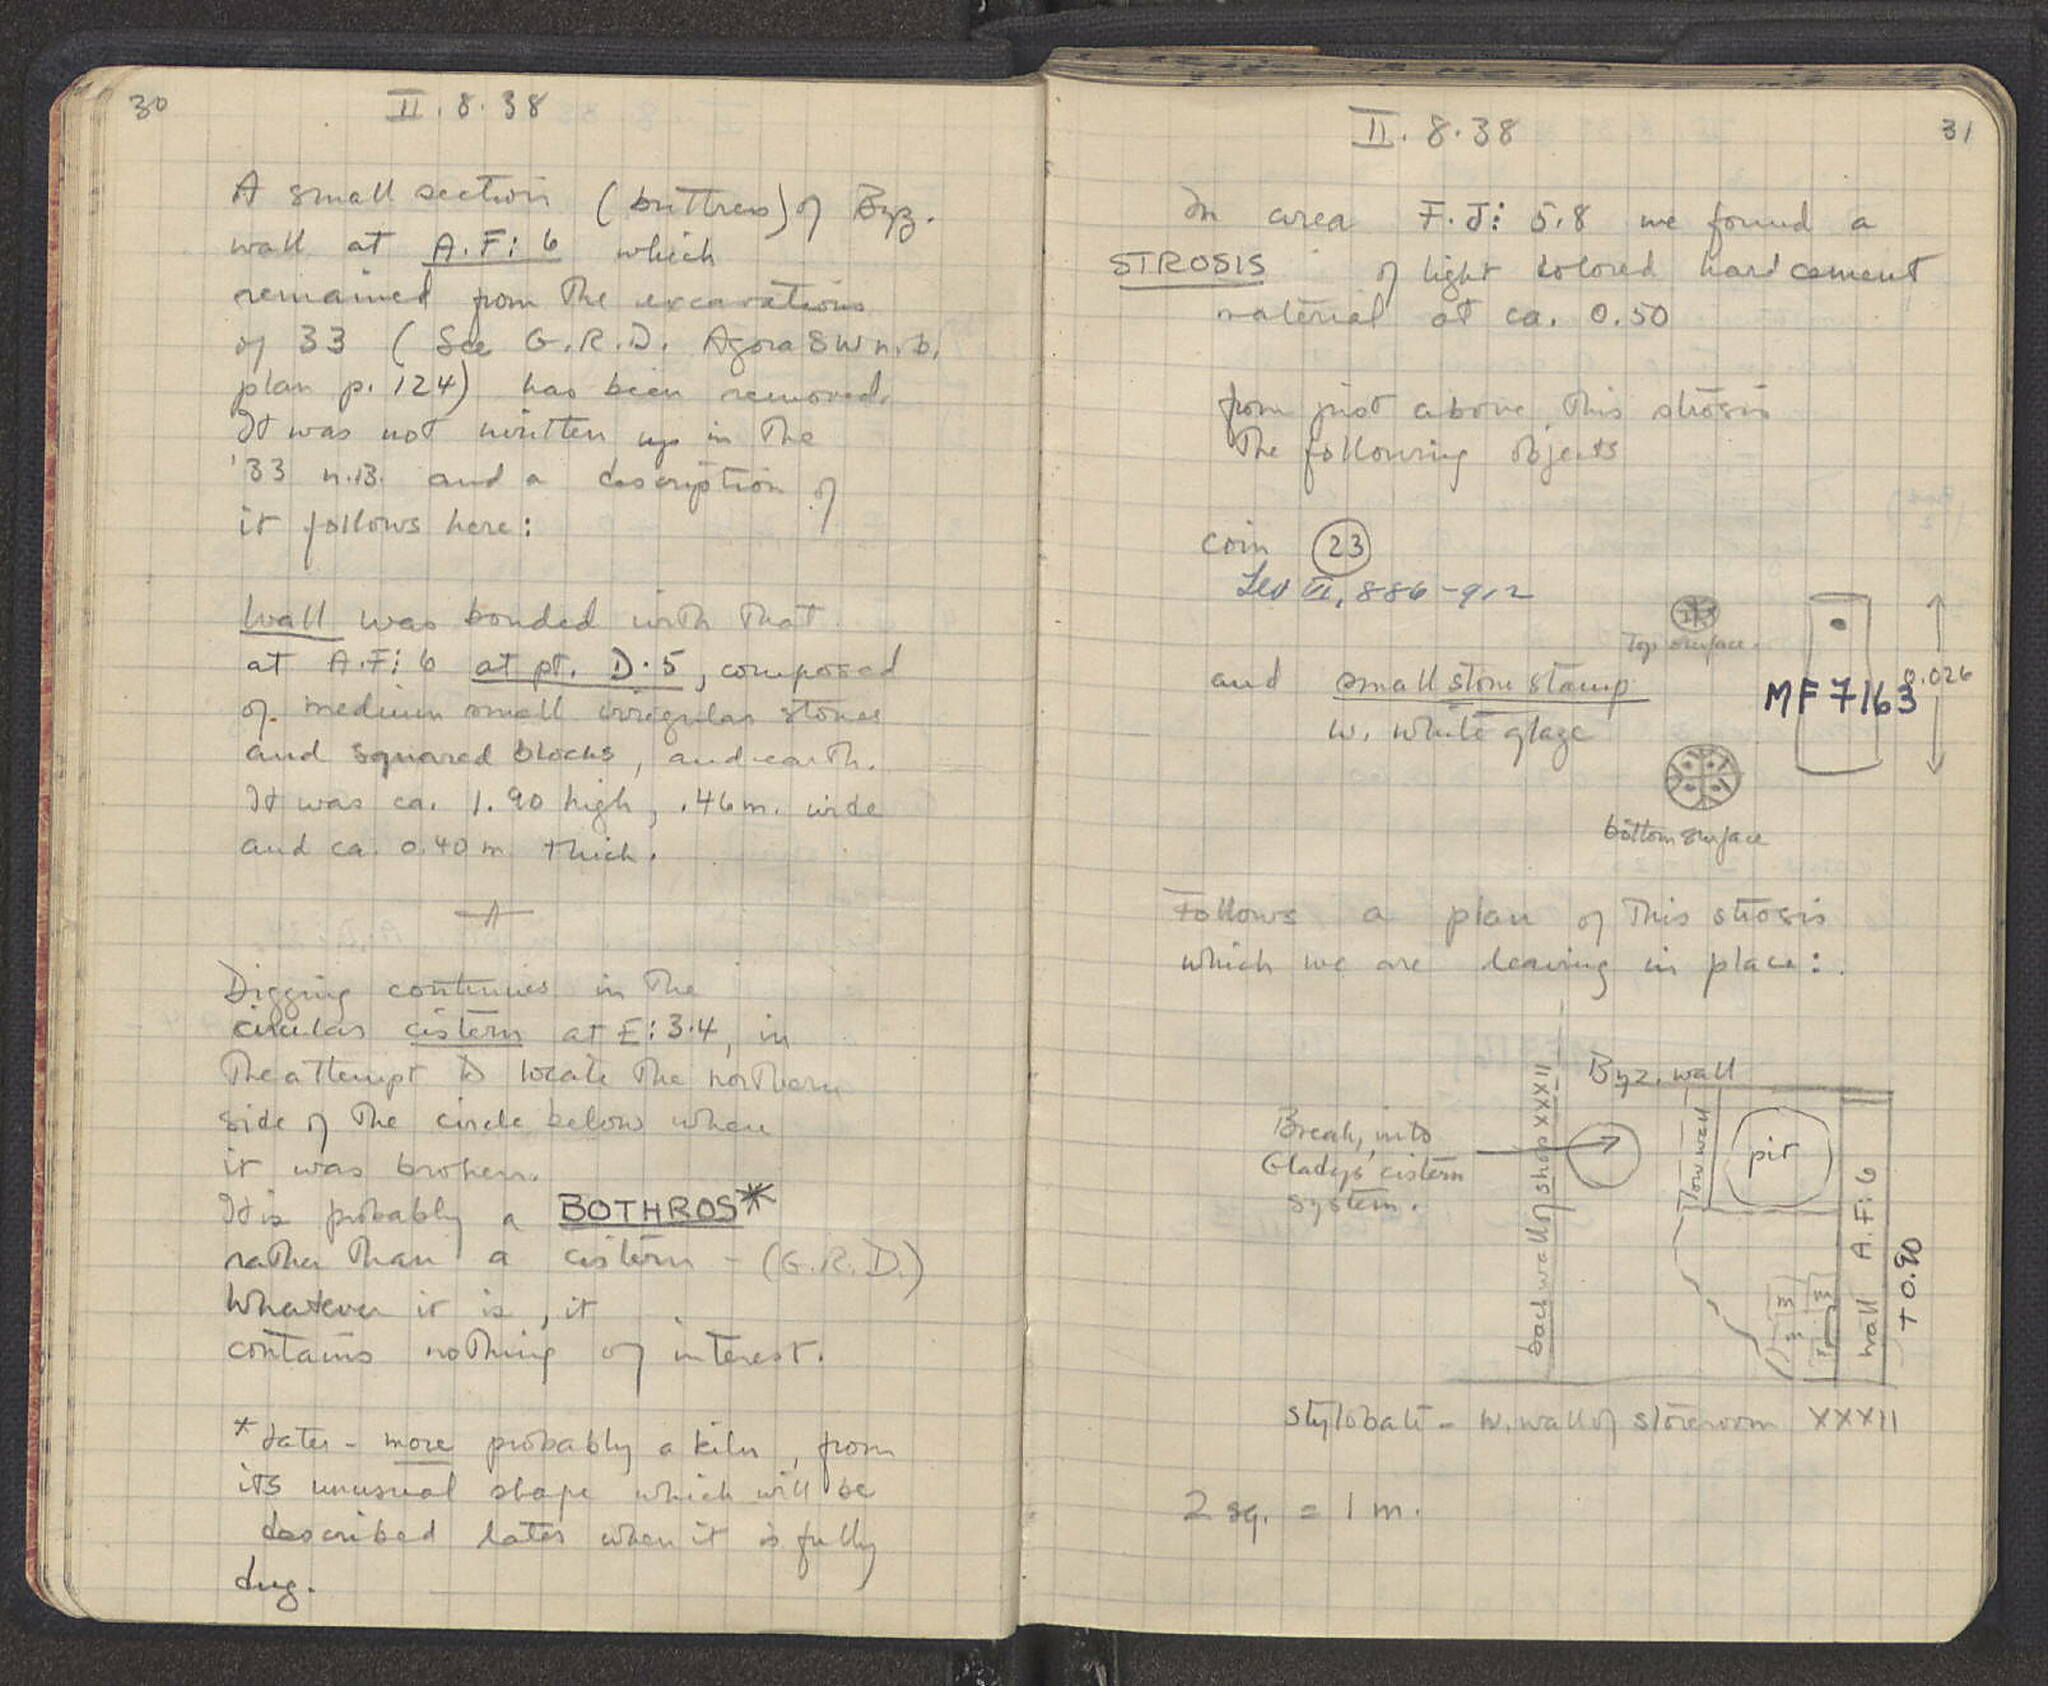 30
II. 8. 38
A small section (buttress) of Byz.
wall at A.F: 6 which
remained from the excavations
of 33 (See G.R.D. Agora SW n.b.
plan p. 124) has been removed.
It was not written up in the
'33 n.B. and a description of
it follows here:
Wall was bonded with that
at A.F: 6 at pt. D.5, composed
of medium small irregular stones
and squared blocks, and earth.
It was ca. 1.90 high, .46 m. wide
and ca. 0.40 m thick.
Digging continues in the
circular cistern at E: 3.4, in
the attempt to locate the northern
side of the circle below where
it was broken.
It is probably a BOTHROS*
rather than a cistern - (G.R.D.)
Whatever it is, it
contains nothing of interest.
*Later - more probably a kiln, from
its unusual shape which will be
described later when it is fully
dug.
II. 8. 38
31
In area F.J: 5.8 we found a
STROSIS of light colored hard cement
material at ca. 0.50
from just above this strosis
the following objects
coin 23
Leo VI, 886-912
Top surface.
and small stone stamp
w. white glaze
MF 7163
0.026
bottom surface
Follows a plan of this strosis
which we are leaving in place:
Byz. wall
Break, into
Gladys' cistern
system.
back wall of shop XXXII
low wall
pit
wall A.F: 6
+0.90
stylobate - W. wall of storeroom XXXII
2 sq. = 1 m.